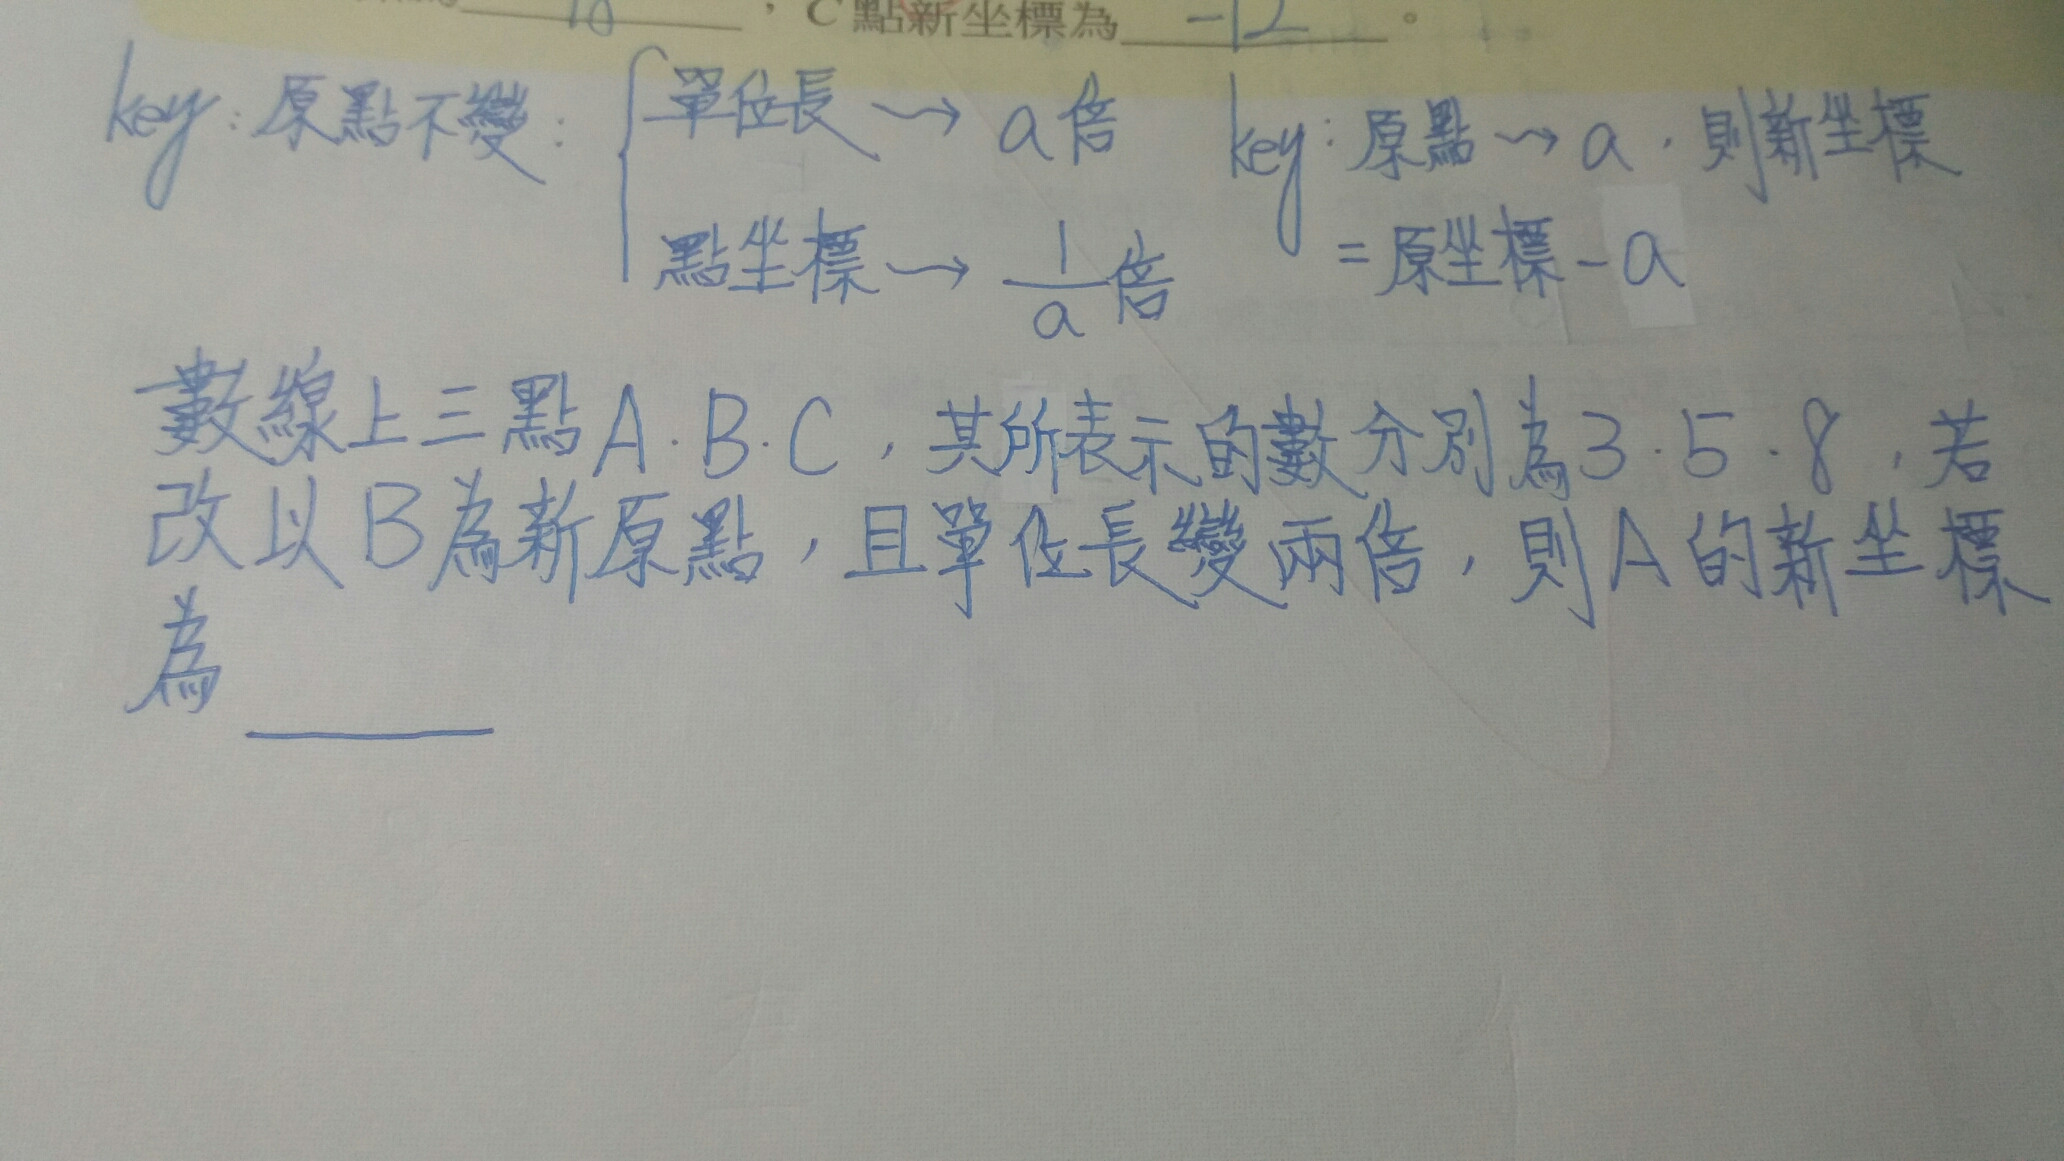 18，C點新坐標為 -12。
key：原點不變：{單位長→a倍
點坐標→1/a倍
key：原點→a，則新坐標
=原坐標-a
數線上三點A.B.C，其所表示的數分別為3.5.8，若
改以B為新原點，且單位長變兩倍，則A的新坐標
為